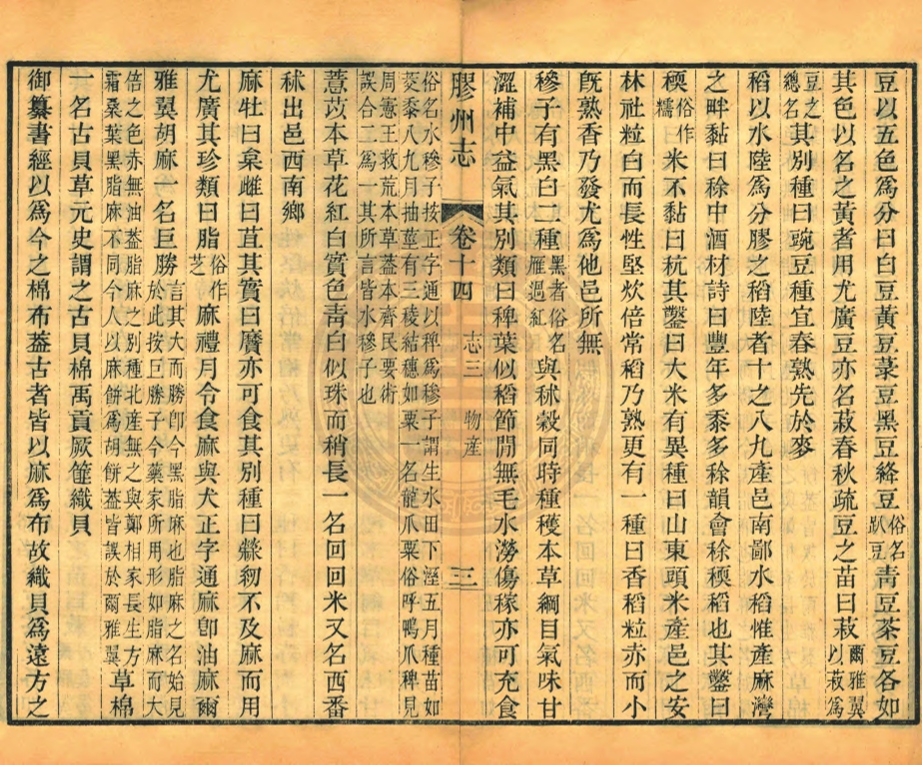 豆以五色為分曰白豆黃豆菉豆黑豆絳豆俗名趴豆靑豆茶豆各如
其色以名之黃者用尤廣豆亦名菽春秋疏豆之苗曰菽爾雅翼以菽為
豆之總名其別種曰豌豆種宜春熟先於麥
稻以水陸為分膠之稻陸者十之八九產邑南鄙水稻惟產麻灣
之畔黏曰稌中酒材詩曰豐年多黍多稌韻會稌稬稻也其鑿曰
稬俗作糯米不黏曰秔其鑿曰大米有異種曰山東頭米產邑之安
林社粒白而長性堅炊倍常稻乃熟更有一種曰香稻粒赤而小
旣熟香乃發尤為他邑所無
穇子有黑白二種黑者俗名雁過紅與秫穀同時種穫本草綱目氣味甘
澀補中益氣其別類曰稗葉似稻節閒無毛水澇傷稼亦可充食
俗名水穇子按正字通以稗為穇子謂生水田下溼五月種苗如
茭黍八九月抽莖有三稜結穗如粟一名龍爪粟俗呼鴨爪稗見
周憲王救荒本草蓋本齊民要術
誤合二為一其所言皆水穇子也
薏苡本草花紅白實色靑白似珠而稍長一名回回米又名西番
秫出邑西南鄉
麻牡曰枲雌曰苴其實曰黂亦可食其別種曰檾紉不及麻而用
尤廣其珍類曰脂俗作芝麻禮月令食麻與犬正字通麻卽油麻爾
雅翼胡麻一名巨勝言其大而勝卽今黑脂麻也脂麻之名始見
於此按巨勝子今藥家所用形如脂麻而大
倍之色赤無油葢脂麻之別種北産無之與鄭相家長生方
霜桑葉黑脂麻不同今人以麻餅為胡餅葢皆誤於爾雅翼草棉
一名古貝草元史謂之古貝棉禹貢厥篚織貝
御纂書經以為今之棉布葢古者皆以麻為布故織貝為遠方之
膠州志
卷十四
志三
物産
三